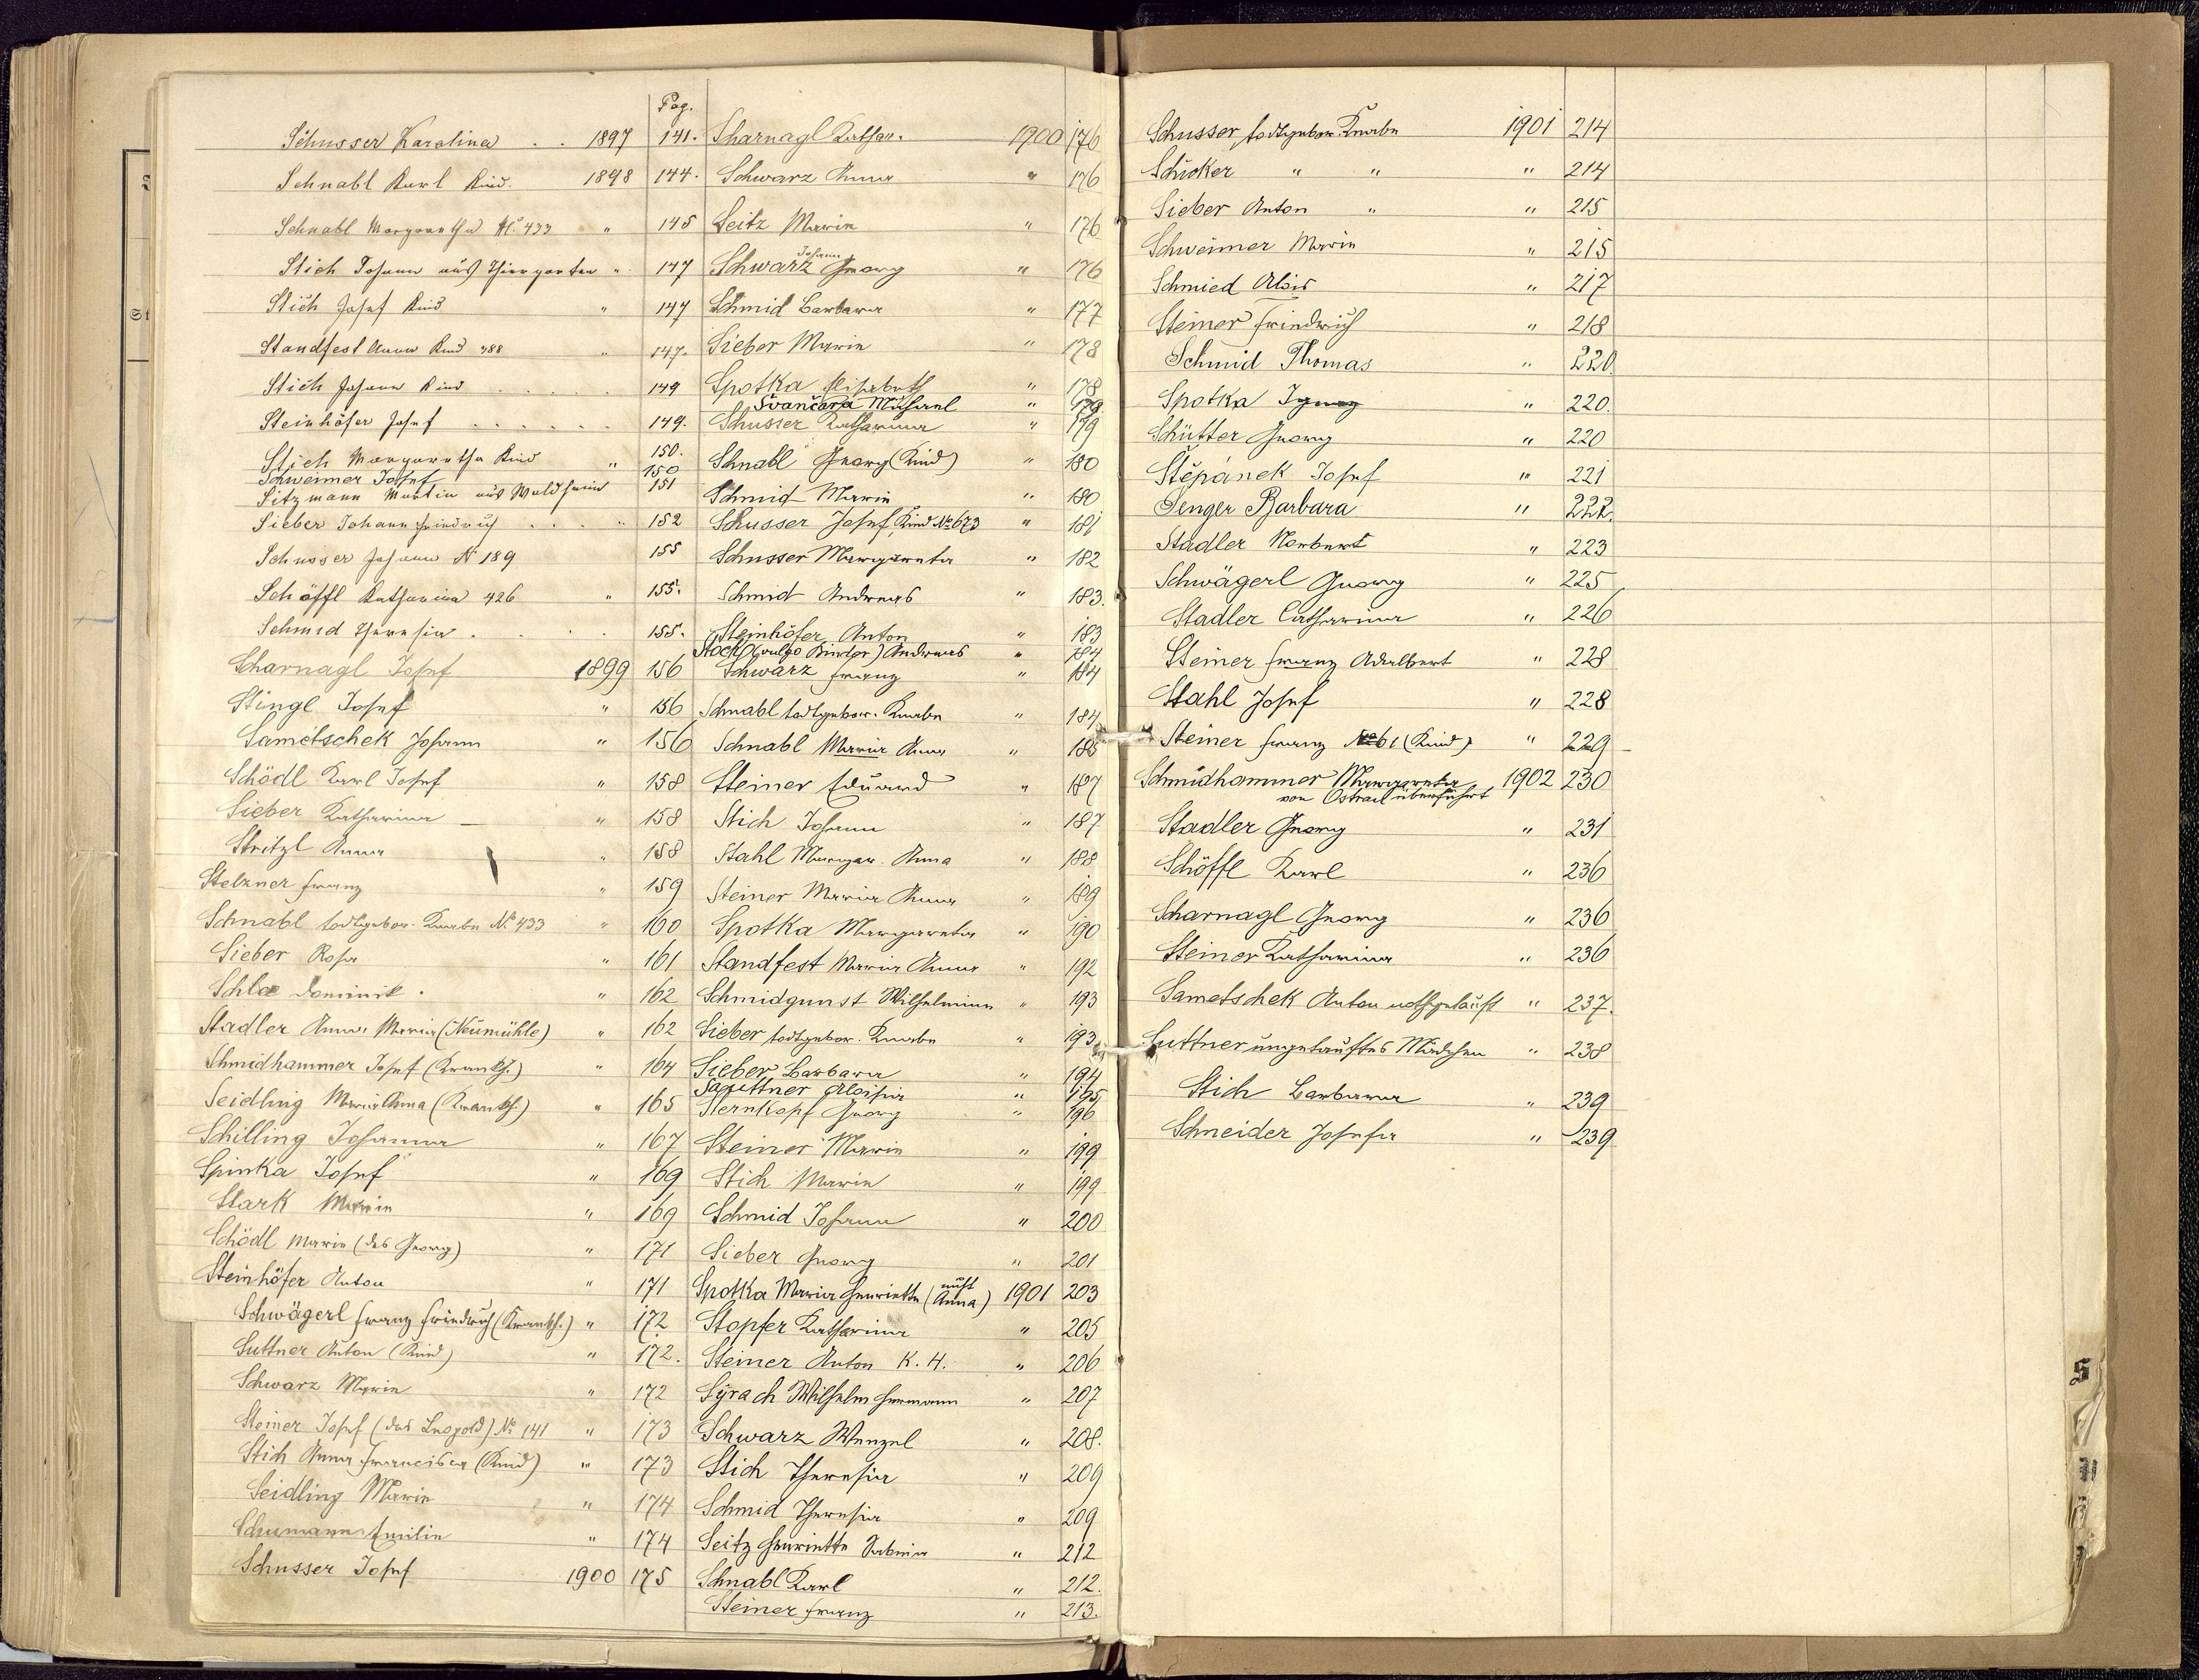 Pag.
Schusser Karolina . . 1897 141.
Schnabl Karl Kind. 1898 144.
Schnabl Margaretha N. 433 " 145
Stich Johann aus Thiergarten " 147
Stich Josef Kind " 147
Standfest Anna Kind 488 " 147.
Stich Johann Kind . . . . . 149
Steinhöfer Josef . . . . . . 149.
Stich Margaretha Kind " 150.
Schweimer Josef 150
Sitzmann Martin aus Waldheim 151
Sieber Johann Friedrich . . . . " 152
Schusser Johann N 189 155
Schöffl Katharina 426 " 155.
Schmid Theresia . . . . 155.
Scharnagl Josef 1899 156
Stingl Josef " 156
Sametschek Johann " 156
Schödl Karl Josef " 158
Sieber Katharina — " 158
Stritzl Anna " 158
Stelzner Franz " 159
Schnabl todtgebor. Knabe No 433 " 160
Sieber Rosa " 161
Schla Dominik . " 162
Stadler Anna Maria (Neumühle) " 162
Schmidhammer Josef (Krankh.) " 164
Seidling Maria Anna (Krankh.) " 165
Schilling Johanna " 167
Spinka Josef " 169
Stark Maria " 169
Schödl Marie (des Georg) " 171
Steinhöfer Anton " 171
Schwägerl Franz Friedrich (Krankh.) " 172
Suttner Anton (Kind) " 172.
Schwarz Marie " 172
Steiner Josef (des Leopold) No 141 " 173
Stich Anna Franciska (Kind) " 173
Seidling Marie " 174
Schumann Emilie " 174
Schusser Josef 1900 175
Scharnagl Kathar. 1900 176
Schwarz Anna " 176
Seitz Marie " 176
Johann
Schwarz Georg " 176
Schmid Barbara " 177
Sieber Marie " 178
Spotka Elisabeth " 178
Švančara Michael " 179.
Schusser Katharina " 179
Schnabl Georg (Kind) " 180
Schmid Marie " 180
Schusser Josef, Kind No 673 " 181
Schusser Margareta " 182
Schmid Andreas " 183.
Steinhöfer Anton " 183
Stöckl (vulgo Binder) Andreas " 184
Schwarz Franz " 184
Schnabl todtgebor. Knabe " 184
Schnabl Maria Anna " 185
Steiner Eduard " 187
Stich Johann " 187
Stahl Margar. Anna " 188
Steiner Maria Anna " 189
Spotka Margareta " 190
Standfest Maria Anna " 192
Schmidgunst Wilhelmine " 193
Sieber todtgebor. Knabe " 193
Sieber Barbara " 194
Aloisia " 195
Sternkopf Georg " 196
Steiner Marie " 199
Stich Marie " 199
Schmid Johann " 200
Sieber Georg " 201
Spotka Maria Henriette (nicht Anna) 1901 203
Stopfer Katharina " 205
Steiner Anton K. H. " 206
Syrach Wilhelm Hermann " 207
Schwarz Wenzel " 208.
Stich Theresia " 209
Schmid Theresia " 209
Seitz Henriette Sabina " 212
Schnabl Karl " 212.
Steiner Franz " 213.
Schusser todtgebor. Knabe 1901 214
Schicker " " " 214
Sieber Anton " " 215
Schweimer Marie " 215
Schmied Alois " 217
Steiner Friedrich " 218
Schmid Thomas " 220.
Spotka Ignaz " 220.
Schütter Georg " 220
Štěpánek Josef " 221
Senger Barbara " 222.
Stadler Norbert " 223
Schwägerl Georg " 225
Stadler Catharina " 226
Steiner Franz Adalbert " 228
Stahl Josef " 228
Steiner Franz No 61 (Kind) " 229
Schmidhammer Margareta 1902 230
von überführt
Stadler Georg " 231
Schöffl Karl " 236
Scharnagl Georg " 236
Steiner Katharina " 236
Sametschek Anton nothgetauft " 237.
Suttner ungetauftes Mädchen " 238
Stich Barbara " 239
Schneider Josefa " 239
S